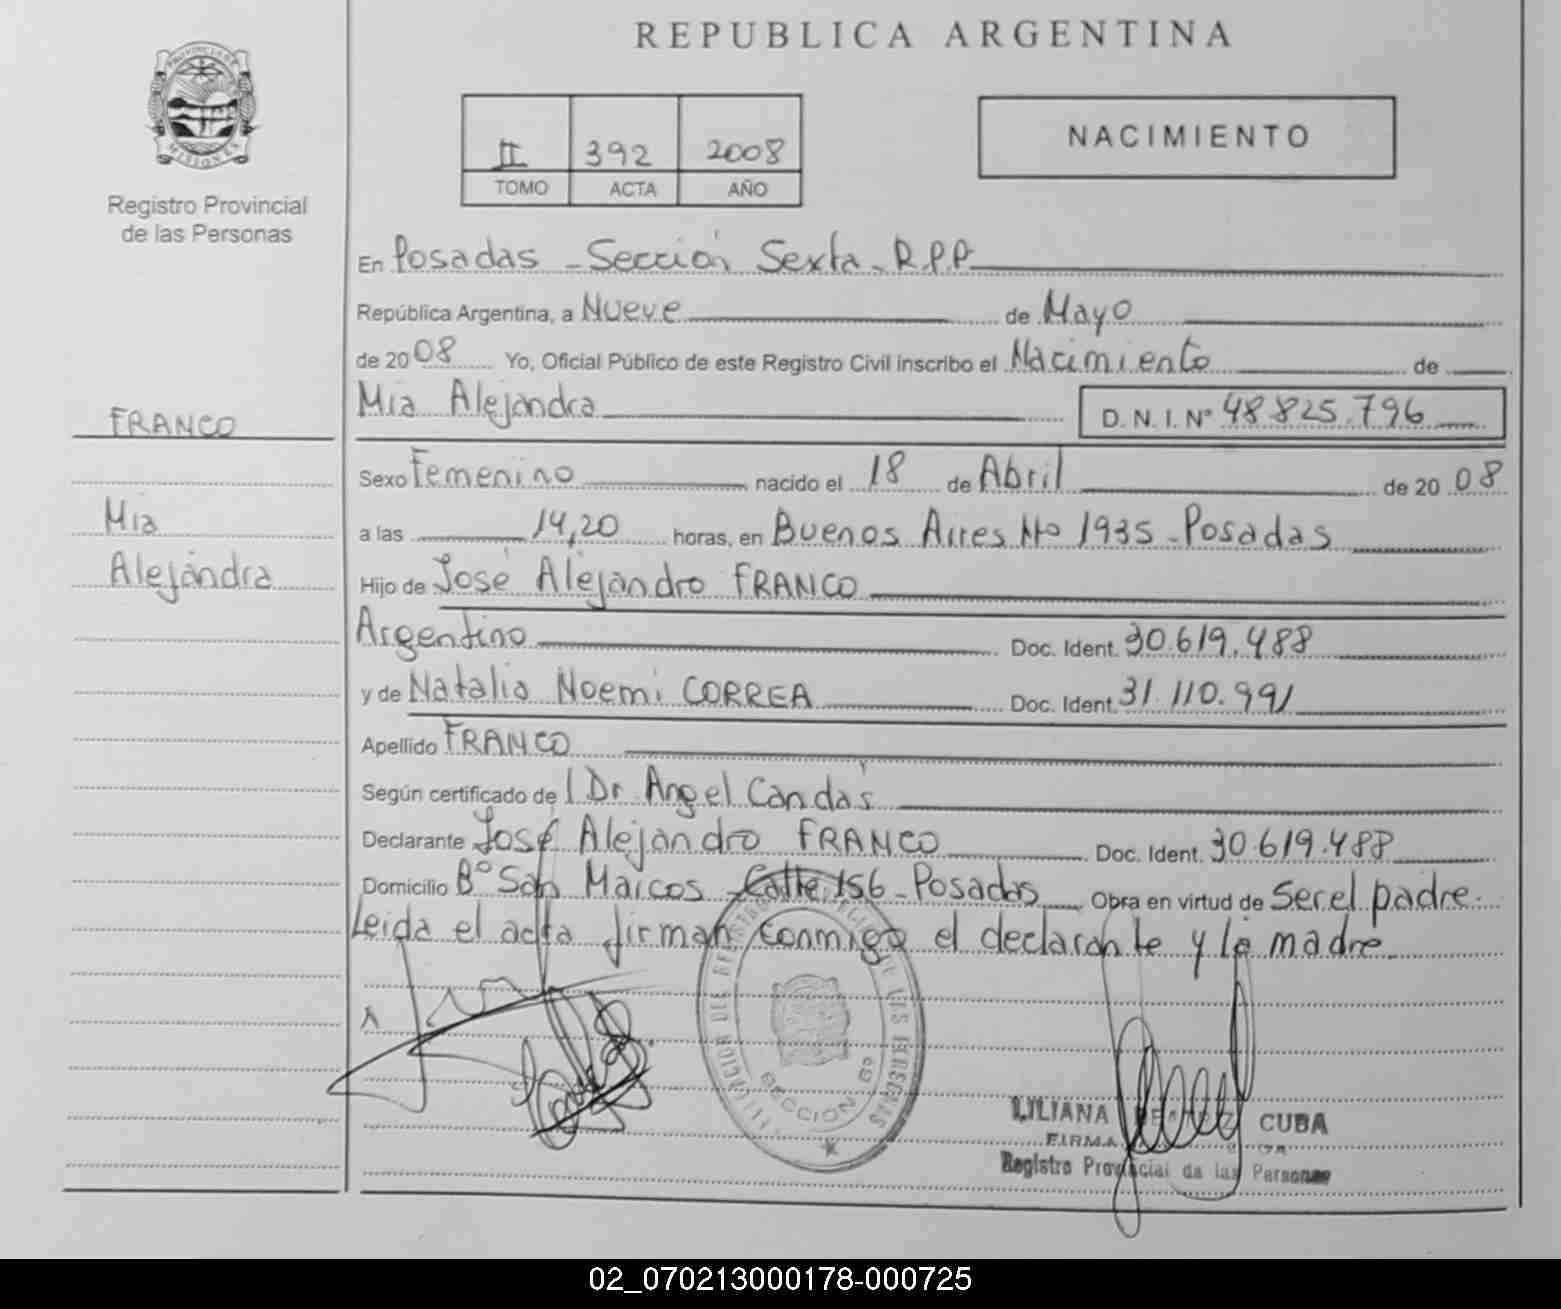 REPUBLICA ARGENTINA
PROVINCIA DE MISIONES
Registro Provincial
de las Personas
II 392 2008
TOMO ACTA AÑO
NACIMIENTO
En Posadas - Sección Sexta - R.P.P.
República Argentina, a Nueve de Mayo
de 2008 Yo, Oficial Público de este Registro Civil inscribo el Nacimiento de
Mia Alejandra D. N. I. Nº 48.825.796
FRANCO
Mia
Alejandra
Sexo Femenino nacido el 18 de Abril de 2008
a las 14,20 horas, en Buenos Aires Nº 1935 - Posadas
Hijo de José Alejandro FRANCO
Argentino Doc. Ident. 30.619.488
y de Natalia Noemi CORREA Doc. Ident. 31.110.991
Apellido FRANCO
Según certificado del Dr Angel Candás
Declarante José Alejandro FRANCO Doc. Ident. 30.619.488
Domicilio Bº San Marcos - Calle 156 - Posadas Obra en virtud de Ser el padre.
Leida el acta firman conmigo el declarante y la madre.
SECCION 6º
LILIANA BEATRIZ CUBA
FIRMA
Registro Provincial de las Personas
02_070213000178-000725